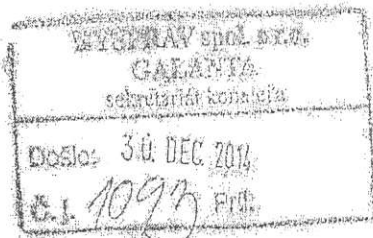 BYSPRAV spol. s r.o.
GALANTA
sekretariát konateľa
Došlo: 30. DEC. 2014
Č.j. 1093 Príl.